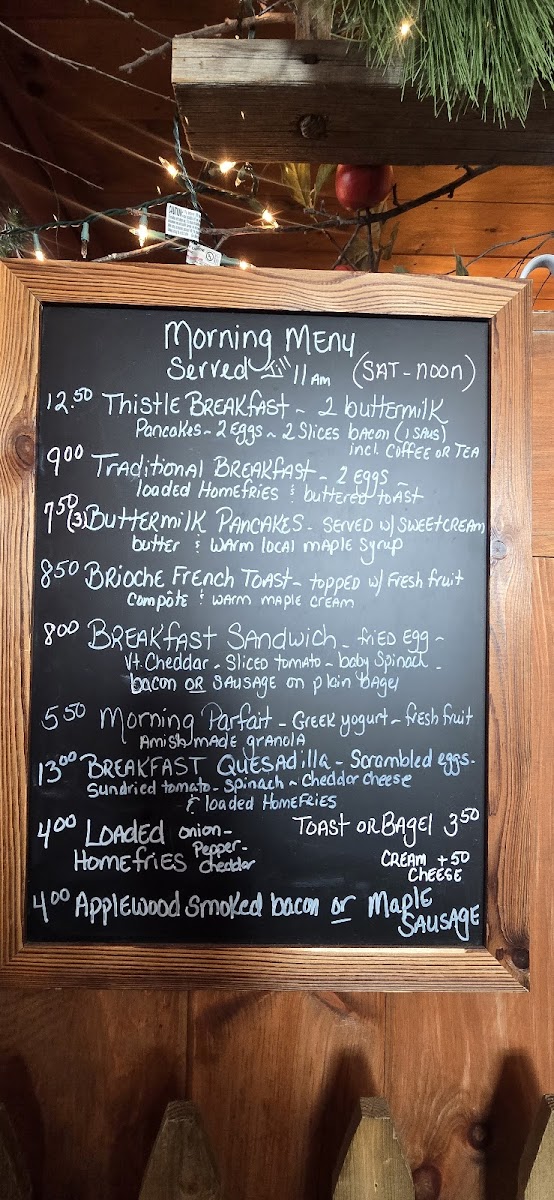 CAUTION
Morning Menu
Served till 11 AM (SAT - NOON)
12.50 Thistle Breakfast ~ 2 buttermilk
Pancakes ~ 2 Eggs ~ 2 Slices bacon (1 SAUS)
incl. COFFEE OR TEA
9.00 Traditional Breakfast - 2 eggs ~
loaded Homefries & buttered toast
7.50 (3) Buttermilk Pancakes - served w/ sweetcream
butter & warm local maple syrup
8.50 Brioche French Toast - topped w/ fresh fruit
compôte & warm maple cream
8.00 Breakfast Sandwich - fried egg ~
Vt. Cheddar - Sliced tomato - baby Spinach -
bacon OR SAUSAGE on plain bagel
5.50 Morning Parfait - Greek yogurt - fresh fruit
Amish made granola
13.00 Breakfast Quesadilla - Scrambled eggs -
Sundried tomato - Spinach ~ Cheddar cheese
& loaded Homefries
4.00 Loaded Homefries onion - Pepper - cheddar
Toast or Bagel 3.50
CREAM CHEESE +50
4.00 Applewood smoked bacon or Maple
SAUSAGE